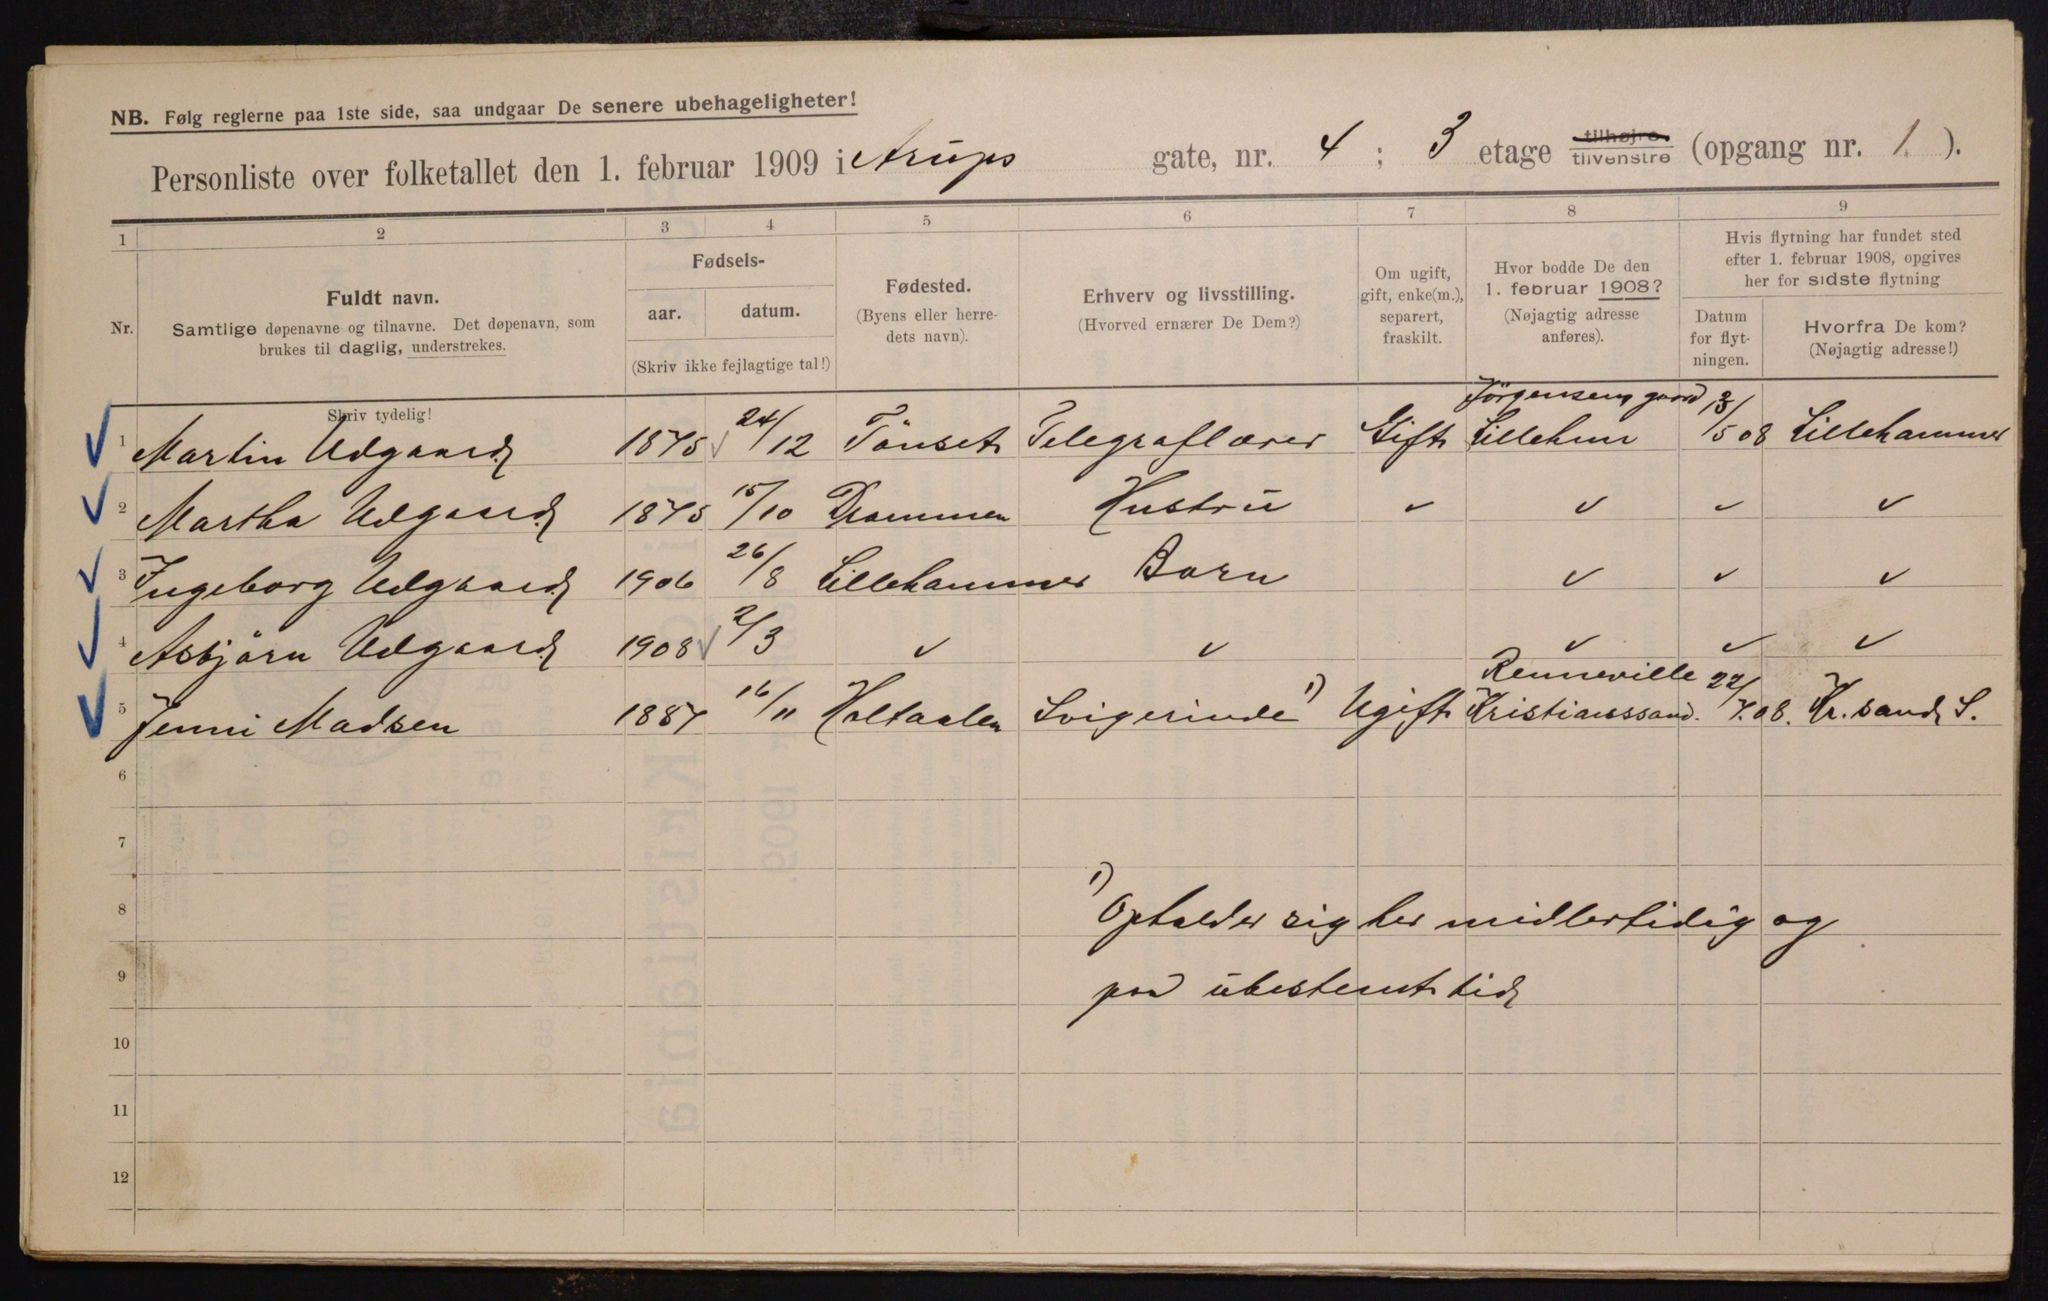 NB. Følg reglerne paa 1ste side, saa undgaar De senere ubehageligheter!
Personliste over folketallet den 1. februar 1909 i Arups gate, nr. 4 ; 3 etage tilhøjre tilvenstre (opgang nr. 1. ).
1 2 3 4 5 6 7 8 9
Nr.
Fuldt navn.
Samtlige døpenavne og tilnavne. Det døpenavn, som
brukes til daglig, understrekes.
Skriv tydelig!
Fødsels-
aar. datum.
(Skriv ikke fejlagtige tal!)
Fødested.
(Byens eller herre-
dets navn).
Erhverv og livsstilling.
(Hvorved ernærer De Dem?)
Om ugift,
gift, enke(m.),
separert,
fraskilt.
Hvor bodde De den
1. februar 1908?
(Nøjagtig adresse
anføres).
Hvis flytning har fundet sted
efter 1. februar 1908, opgives
her for sidste flytning
Datum
for flyt-
ningen.
Hvorfra De kom?
(Nøjagtig adresse!)
Jörgensengaard
1 Martin Udgaard 1875 24/12 Tönset Telegraflærer Gift Lillehmr /5 08 Lillehammer
2 Martha Udgaard 1875 15/10 Drammen Hustru ✓ ✓ ✓ ✓
3 Ingeborg Udgaard 1906 26/8 Lillehammer Barn ✓ ✓ ✓
4 Asbjörn Udgaard 1908 2/3 ✓ ✓ ✓ ✓ ✓
Renneville
5 Jenni Madsen 1887 16/11 Holtaalen Svigerinde 1) Ugift Kristianssand. 22/7.08. Kr.sand S.
6
7
8 1) Opholder sig her midlertidig og
9 paa ubestemt tid
10
11
12